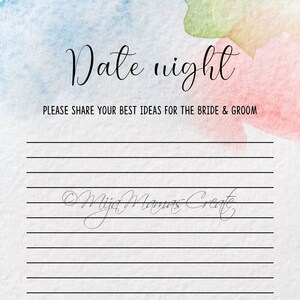 Date night
PLEASE SHARE YOUR BEST IDEAS FOR THE BRIDE & GROOM
©MijaMamasCreate